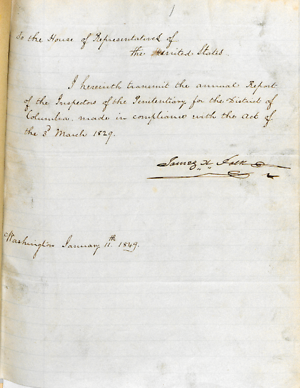 To the House of Representatives of
the United States.
I herewith transmit the annual Report
of the Inspectors of the Penitentiary for the District of
Columbia, made in compliance with the Act of
the 3d March 1829.
James K. Polk
Washington January 11th 1849.